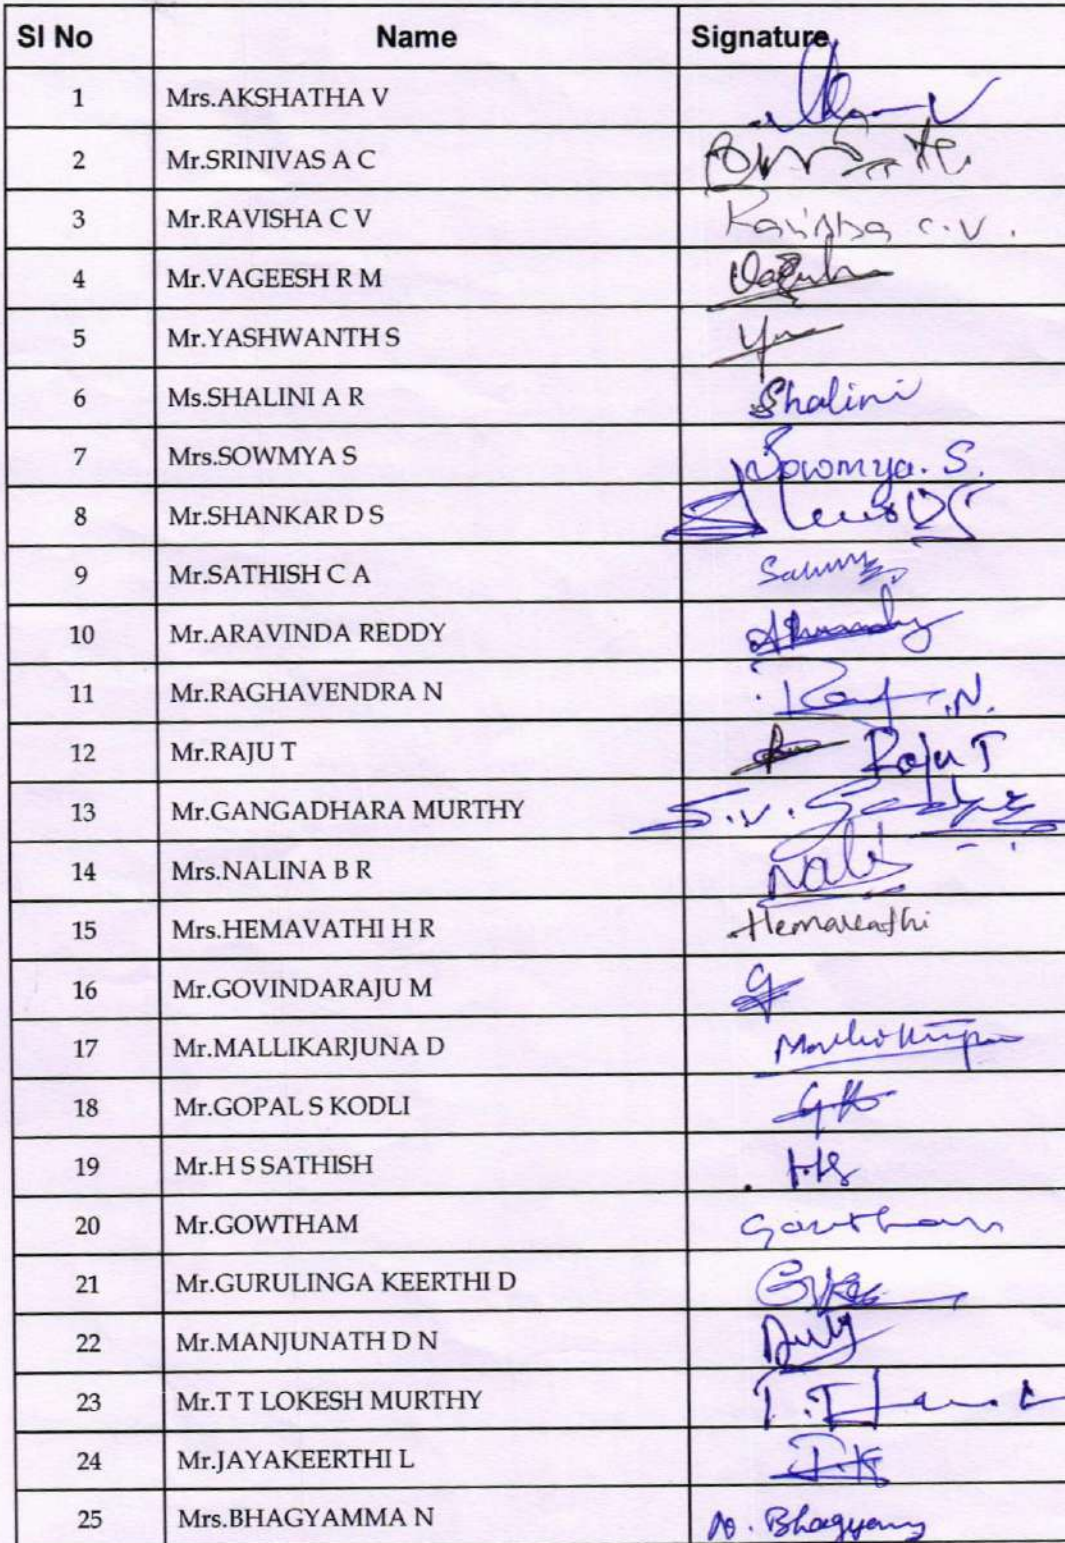 Sl No Name Signature
1 Mrs.AKSHATHA V
2 Mr.SRINIVAS A C
3 Mr.RAVISHA C V Ravisha C.V.
4 Mr.VAGEESH R M
5 Mr.YASHWANTH S
6 Ms.SHALINI A R Shalini
7 Mrs.SOWMYA S Sowmya. S.
8 Mr.SHANKAR D S
9 Mr.SATHISH C A
10 Mr.ARAVINDA REDDY
11 Mr.RAGHAVENDRA N
12 Mr.RAJU T Raju T
13 Mr.GANGADHARA MURTHY
14 Mrs.NALINA B R
15 Mrs.HEMAVATHI H R Hemavathi
16 Mr.GOVINDARAJU M
17 Mr.MALLIKARJUNA D
18 Mr.GOPAL S KODLI
19 Mr.H S SATHISH
20 Mr.GOWTHAM Gowtham
21 Mr.GURULINGA KEERTHI D
22 Mr.MANJUNATH D N
23 Mr.T T LOKESH MURTHY
24 Mr.JAYAKEERTHI L
25 Mrs.BHAGYAMMA N